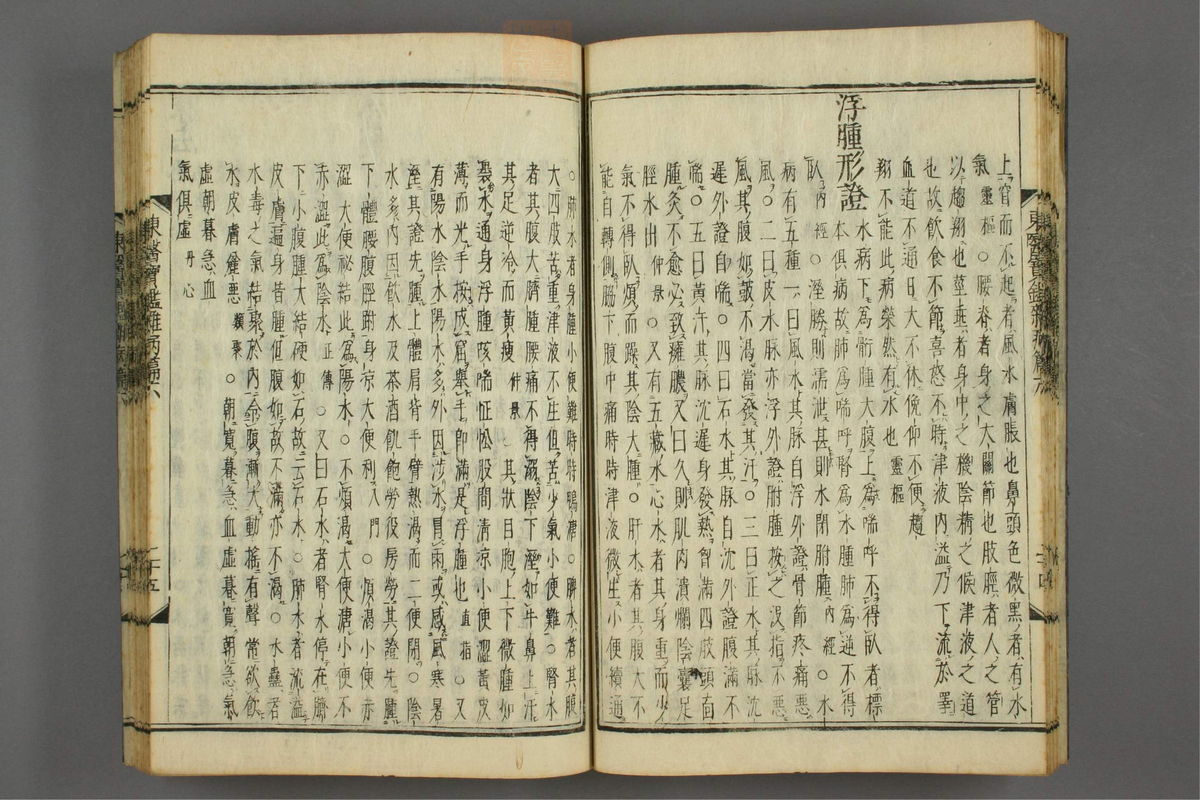 上窅而不起者風水膚脹也鼻頭色微黑者有水
氣靈樞○腰脊者身之大關節也肢脛者人之管
以趨翔也莖垂者身中之機陰精之候津液之道
也故飲食不節喜怒不時津液內溢乃下流於睪
血道不通日大不休俛仰不便趨
翔不能此病榮然有水也靈樞
浮腫形證
水病下爲胕腫大腹上爲喘呼不得臥者標
本俱病故肺爲喘呼腎爲水腫肺爲逆不得
臥內經○溼勝則濡泄甚則水閉胕腫內經○水
病有五種一曰風水其脉自浮外證骨節疼痛惡
風○二曰皮水脉亦浮外證胕腫按之沒指不惡
風其腹如皷不渴當發其汗○三曰正水其脉沈
遲外證自喘○四曰石水其脉自沈外證腹滿不
喘○五曰黃汗其脉沈遲身發熱胷滿四肢頭面
腫灸不愈必致癰膿又曰久則肌肉潰爛陰囊足
脛水出仲景○又有五藏水心水者其身重而少
氣不得臥煩而躁其陰大腫○肝水者其腹大不
能自轉側脇下腹中痛時時津液微生小便續通
○肺水者身腫小便難時時鴨溏○脾水者其腹
大四肢苦重津液不生但苦少氣小便難○腎水
者其腹大臍腫腰痛不得溺陰下溼如牛鼻上汗
其足逆冷而黃瘦仲景○其狀目胞上下微腫如
裂水通身浮腫咳喘怔忪股間清涼小便澀黃皮
薄而光手按成窟舉手卽滿是浮腫也直指○又
有陽水陰水陽水多外因涉水冒雨或感風寒暑
溼其證先腫上體肩背手臂熱渴而二便閉○陰
水多內因飲水及茶酒飢飽勞役房勞其證先腫
下體腰腹脛跗身涼大便利入門○煩渴小便赤
澀大便祕結此爲陽水○不煩渴大便溏小便不
赤澀此爲陰水正傳○又曰石水者腎水停在臍
下小腹腫大結硬如石故云石水○肺水者流溢
皮膚遍身昔腫但腹如故不滿亦不渴○水蠱者
水毒之氣結聚於內令腹漸大動搖有聲常欲飲
水皮膚麤惡類聚○朝寬暮急血虛暮寬朝急氣
虛朝暮急血
氣俱虛丹心
東醫寶鑑雜病篇六
二十四
東醫寶鑑雜病篇六
二十五